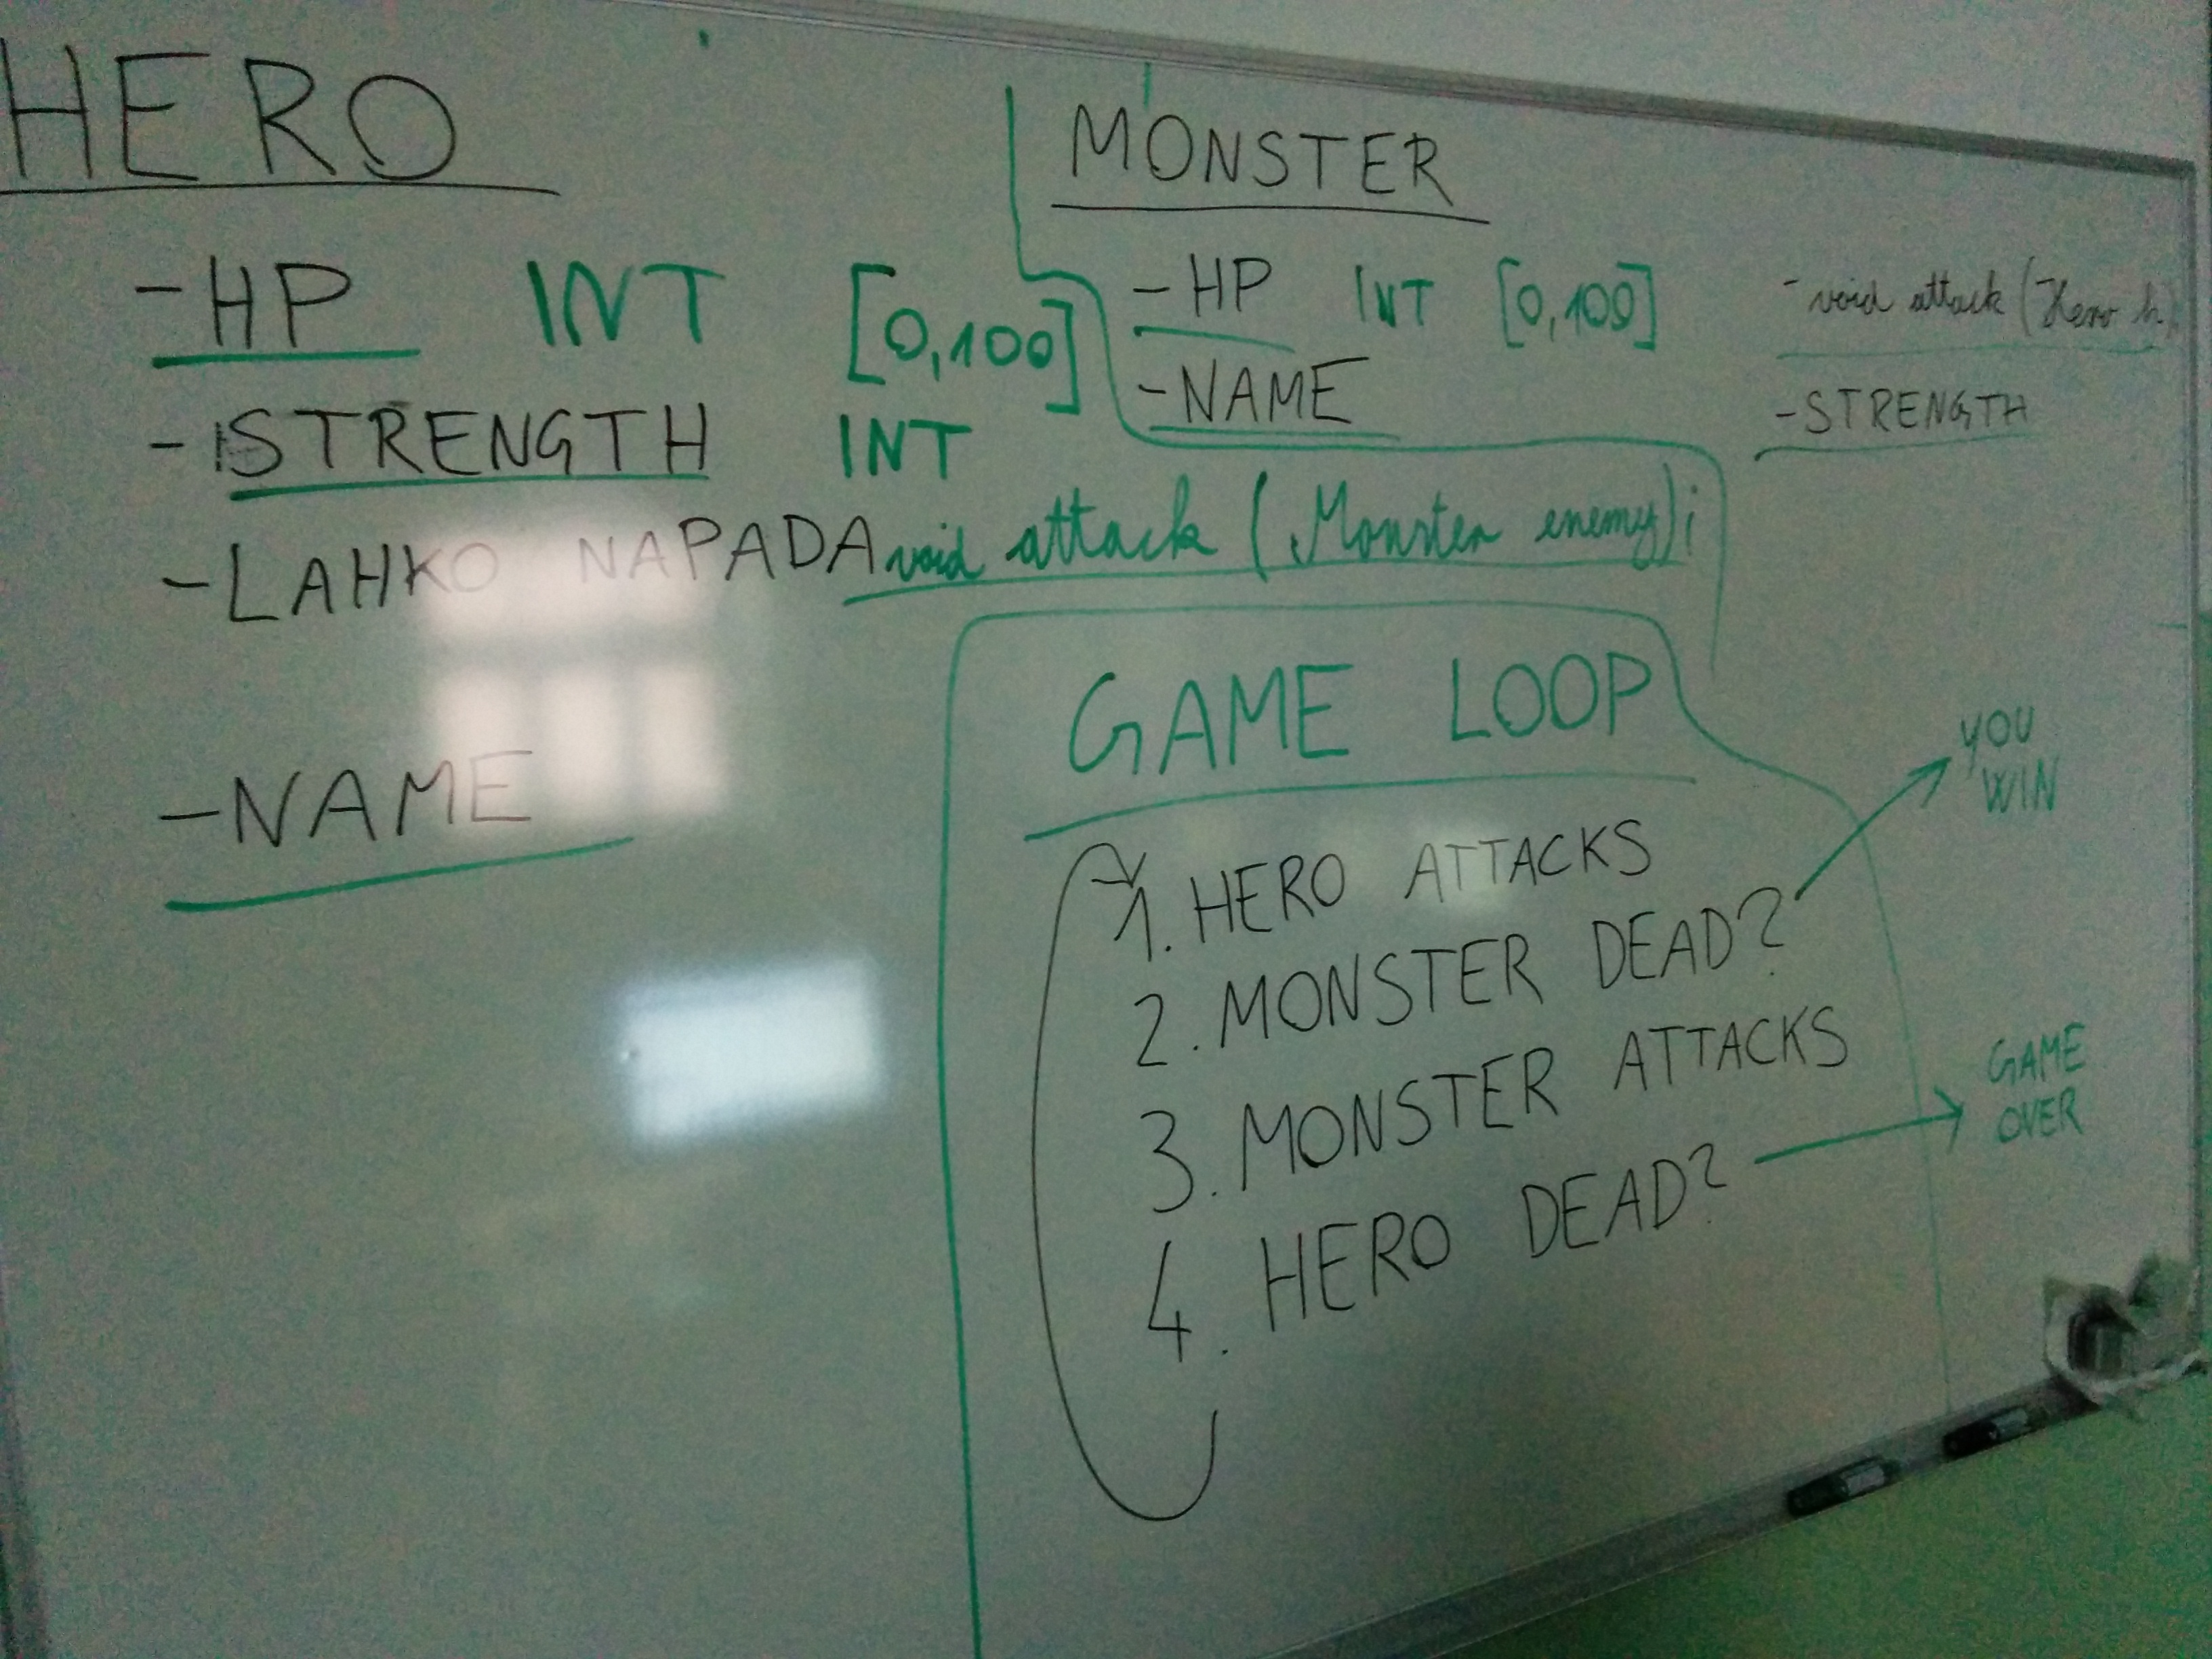 HERO
-HP INT [0,100]
-STRENGTH INT
-LAHKO NAPADA void attack (Monster enemy);
-NAME
MONSTER
-HP INT [0,100]
-NAME
-void attack (Hero h)
-STRENGTH
GAME LOOP
1. HERO ATTACKS
2. MONSTER DEAD?
YOU
WIN
3. MONSTER ATTACKS
4. HERO DEAD?
GAME
OVER